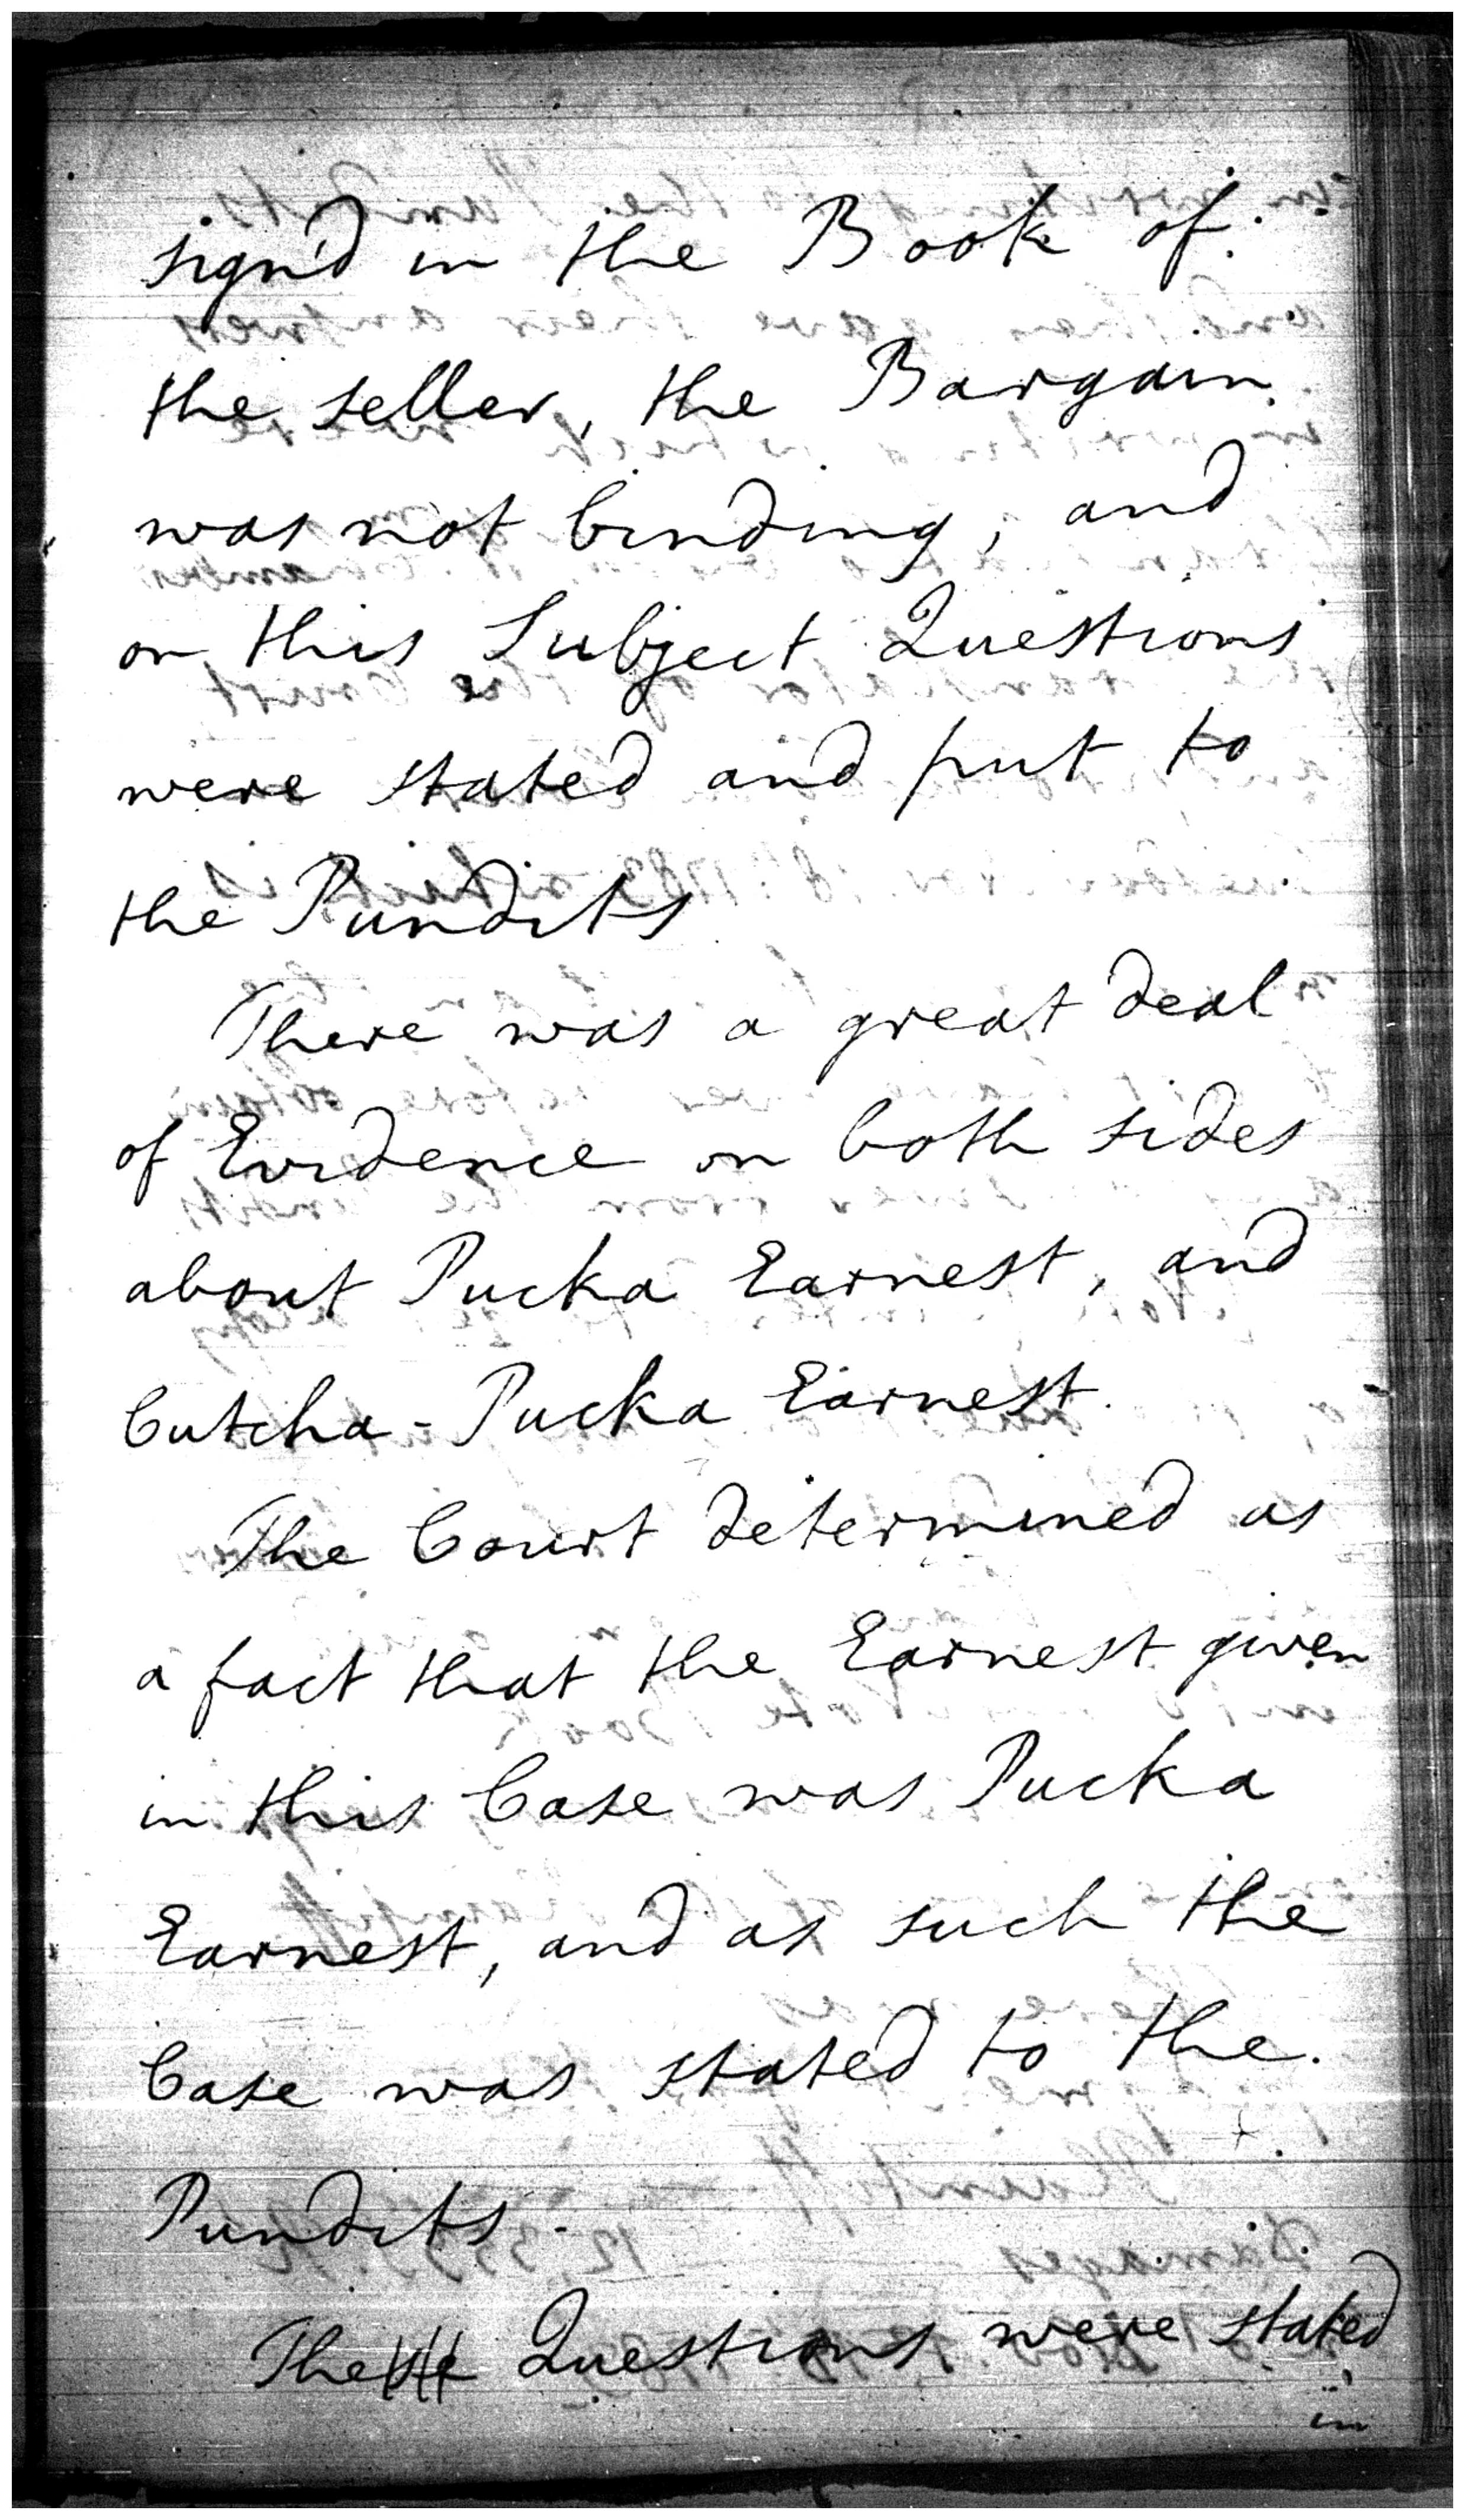 sign'd in the Book of
the seller, the Bargain
was not binding, and
on this Subject Questions
were stated and put to
the Pundits
There was a great deal
of Evidence on both sides
about Pucka Earnest, and
Cutcha-Pucka Earnest.
The Court determined as
a fact that the Earnest given
in this Case was Pucka
Earnest, and as such the
Case was stated to the
Pundits.
The Questions were stated
in